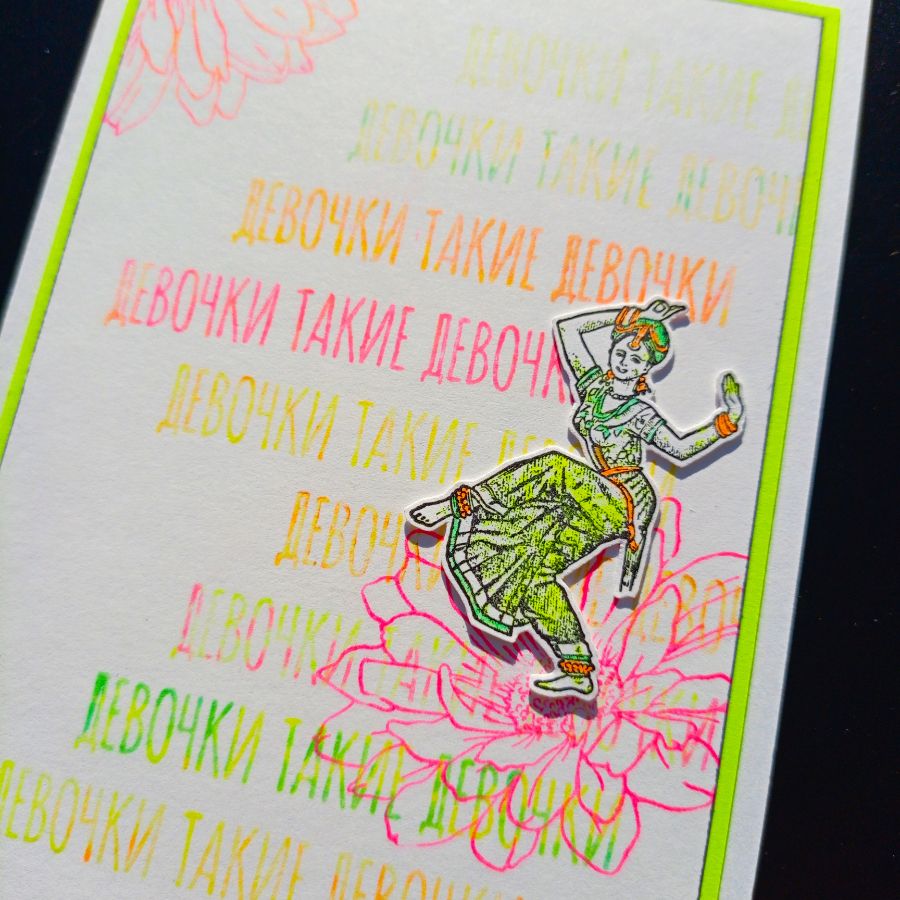 ДЕВОЧКИ ТАКИЕ
ДЕВОЧКИ ТАКИЕ
ДЕВОЧКИ ТАКИЕ ДЕВОЧКИ
ДЕВОЧКИ ТАКИЕ
ДЕВОЧКИ ТАКИЕ
ДЕВОЧКИ
ДЕВОЧКИ ТАКИЕ
ДЕВОЧКИ ТАКИЕ ДЕВОЧКИ
ДЕВОЧКИ ТАКИЕ ДЕВОЧКИ